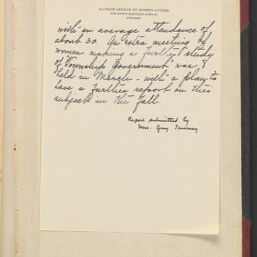 ILLINOIS LEAGUE OF WOMEN VOTERS
with an average attendance of
about 30. An extra meeting of
women making a further study
of Township Government was
held in March - with a plan to
have a further report on this
subject in the fall.
Report submitted by
Mrs. Guy